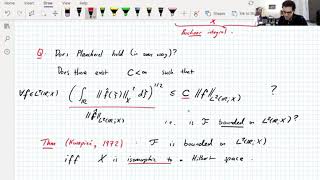 X
Bochner integral.
Q: Does Plancherel hold (in some way)?
Does there exist C<∞ such that
∀f∈L²(ℝ;X) ( ∫_ℝ ‖f̂(ξ)‖²_X dξ )^{1/2} ≤ C ‖f‖_{L²(ℝ;X)} ?
‖f̂‖_{L²(ℝ;X)}
i.e. is F bounded on L²(ℝ;X)?
Thm (Kwapień, 1972): F is bounded on L²(ℝ;X)
iff X is isomorphic to a Hilbert space.